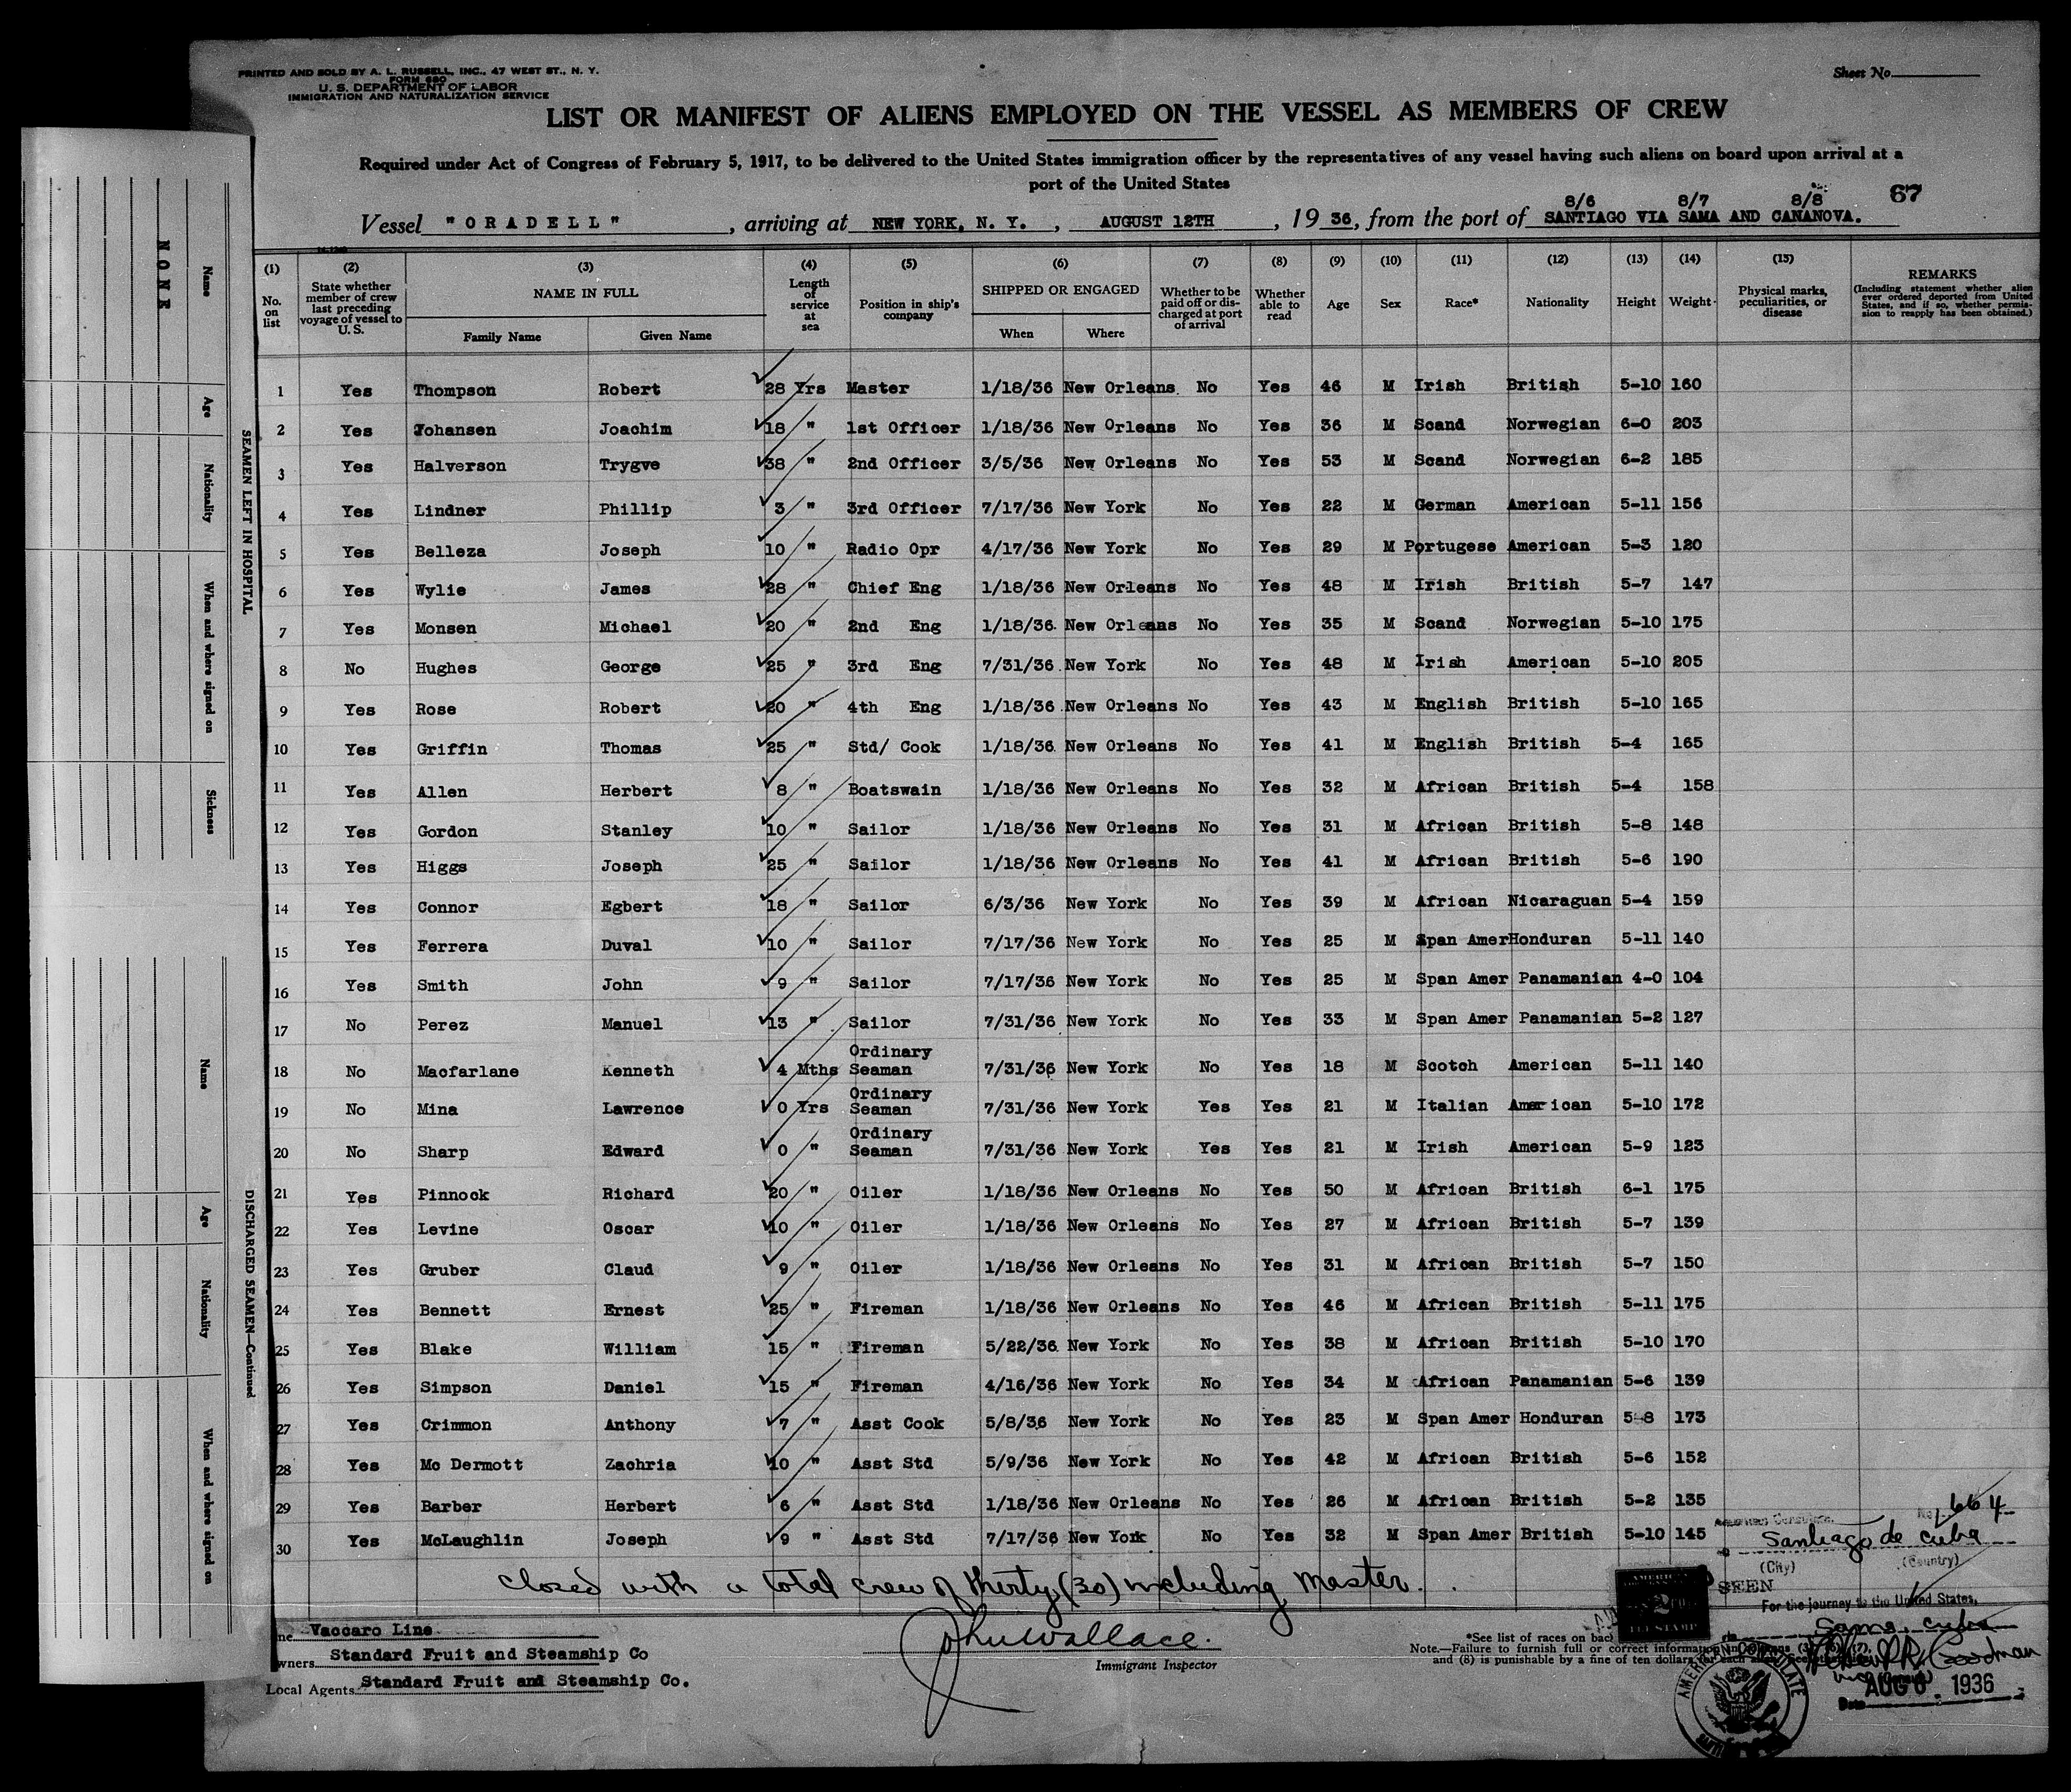 PRINTED AND SOLD BY A. L. RUSSELL, INC., 47 WEST ST., N. Y.
FORM 680
U. S. DEPARTMENT OF LABOR
IMMIGRATION AND NATURALIZATION SERVICE
Sheet No.
LIST OR MANIFEST OF ALIENS EMPLOYED ON THE VESSEL AS MEMBERS OF CREW
Required under Act of Congress of February 5, 1917, to be delivered to the United States immigration officer by the representatives of any vessel having such aliens on board upon arrival at a
port of the United States
8/6 8/7 8/8 67
Vessel "ORADELL", arriving at NEW YORK, N. Y., AUGUST 12TH, 1936, from the port of SANTIAGO VIA SAMA AND CANANOVA.
(1) No. on list
(2) State whether member of crew last preceding voyage of vessel to U. S.
(3) NAME IN FULL Family Name Given Name
(4) Length of service at sea
(5) Position in ship's company
(6) SHIPPED OR ENGAGED When Where
(7) Whether to be paid off or discharged at port of arrival
(8) Whether able to read
(9) Age
(10) Sex
(11) Race*
(12) Nationality
(13) Height
(14) Weight
(15) Physical marks, peculiarities, or disease
REMARKS (Including statement whether alien ever ordered deported from United States, and if so, whether permission to reapply has been obtained.)
1 Yes Thompson Robert 28 Yrs Master 1/18/36 New Orleans No Yes 46 M Irish British 5-10 160
2 Yes Johansen Joachim 18 " 1st Officer 1/18/36 New Orleans No Yes 36 M Scand Norwegian 6-0 203
3 Yes Halverson Trygve 38 " 2nd Officer 3/5/36 New Orleans No Yes 53 M Scand Norwegian 6-2 185
4 Yes Lindner Phillip 3 " 3rd Officer 7/17/36 New York No Yes 22 M German American 5-11 156
5 Yes Belleza Joseph 10 " Radio Opr 4/17/36 New York No Yes 29 M Portugese American 5-3 120
6 Yes Wylie James 28 " Chief Eng 1/18/36 New Orleans No Yes 48 M Irish British 5-7 147
7 Yes Monsen Michael 20 " 2nd Eng 1/18/36 New Orleans No Yes 35 M Scand Norwegian 5-10 175
8 No Hughes George 25 " 3rd Eng 7/31/36 New York No Yes 48 M Irish American 5-10 205
9 Yes Rose Robert 20 " 4th Eng 1/18/36 New Orleans No Yes 43 M English British 5-10 165
10 Yes Griffin Thomas 25 " Std/ Cook 1/18/36 New Orleans No Yes 41 M English British 5-4 165
11 Yes Allen Herbert 8 " Boatswain 1/18/36 New Orleans No Yes 32 M African British 5-4 158
12 Yes Gordon Stanley 10 " Sailor 1/18/36 New Orleans No Yes 31 M African British 5-8 148
13 Yes Higgs Joseph 25 " Sailor 1/18/36 New Orleans No Yes 41 M African British 5-6 190
14 Yes Connor Egbert 18 " Sailor 6/3/36 New York No Yes 39 M African Nicaraguan 5-4 159
15 Yes Ferrera Duval 10 " Sailor 7/17/36 New York No Yes 25 M Span Amer Honduran 5-11 140
16 Yes Smith John 9 " Sailor 7/17/36 New York No Yes 25 M Span Amer Panamanian 4-0 104
17 No Perez Manuel 13 " Sailor 7/31/36 New York No Yes 33 M Span Amer Panamanian 5-2 127
18 No Macfarlane Kenneth 4 Mths Ordinary Seaman 7/31/36 New York No Yes 18 M Scotch American 5-11 140
19 No Mina Lawrence 0 Yrs Ordinary Seaman 7/31/36 New York Yes Yes 21 M Italian American 5-10 172
20 No Sharp Edward 0 " Ordinary Seaman 7/31/36 New York Yes Yes 21 M Irish American 5-9 123
21 Yes Pinnock Richard 20 " Oiler 1/18/36 New Orleans No Yes 50 M African British 6-1 175
22 Yes Levine Oscar 10 " Oiler 1/18/36 New Orleans No Yes 27 M African British 5-7 139
23 Yes Gruber Claud 9 " Oiler 1/18/36 New Orleans No Yes 31 M African British 5-7 150
24 Yes Bennett Ernest 25 " Fireman 1/18/36 New Orleans No Yes 46 M African British 5-11 175
25 Yes Blake William 15 " Fireman 5/22/36 New York No Yes 38 M African British 5-10 170
26 Yes Simpson Daniel 15 " Fireman 4/16/36 New York No Yes 34 M African Panamanian 5-6 139
27 Yes Crimmon Anthony 7 " Asst Cook 5/8/36 New York No Yes 23 M Span Amer Honduran 5-8 173
28 Yes Mc Dermott Zachria 10 " Asst Std 5/9/36 New York No Yes 42 M African British 5-6 152
29 Yes Barber Herbert 6 " Asst Std 1/18/36 New Orleans No Yes 26 M African British 5-2 135
30 Yes McLaughlin Joseph 9 " Asst Std 7/17/36 New York No Yes 32 M Span Amer British 5-10 145
Closed with a total crew of thirty (30) including Master.
No. 664
American Consulate
Santiago de Cuba
(City) (Country)
SEEN
For the journey to the United States,
Sama, Cuba
Goodman
Date AUG 6 1936
Vaccaro Line
wners Standard Fruit and Steamship Co
Local Agents Standard Fruit and Steamship Co.
John Wallace.
Immigrant Inspector
*See list of races on bac
Note.—Failure to furnish full or correct information in columns
and (8) is punishable by a fine of ten dollars for each alien.
AMERICAN CONSULATE
NONE
Name
Age
Nationality
When and where signed on
Sickness
SEAMEN LEFT IN HOSPITAL
Name
Age
Nationality
When and where signed on
DISCHARGED SEAMEN—Continued